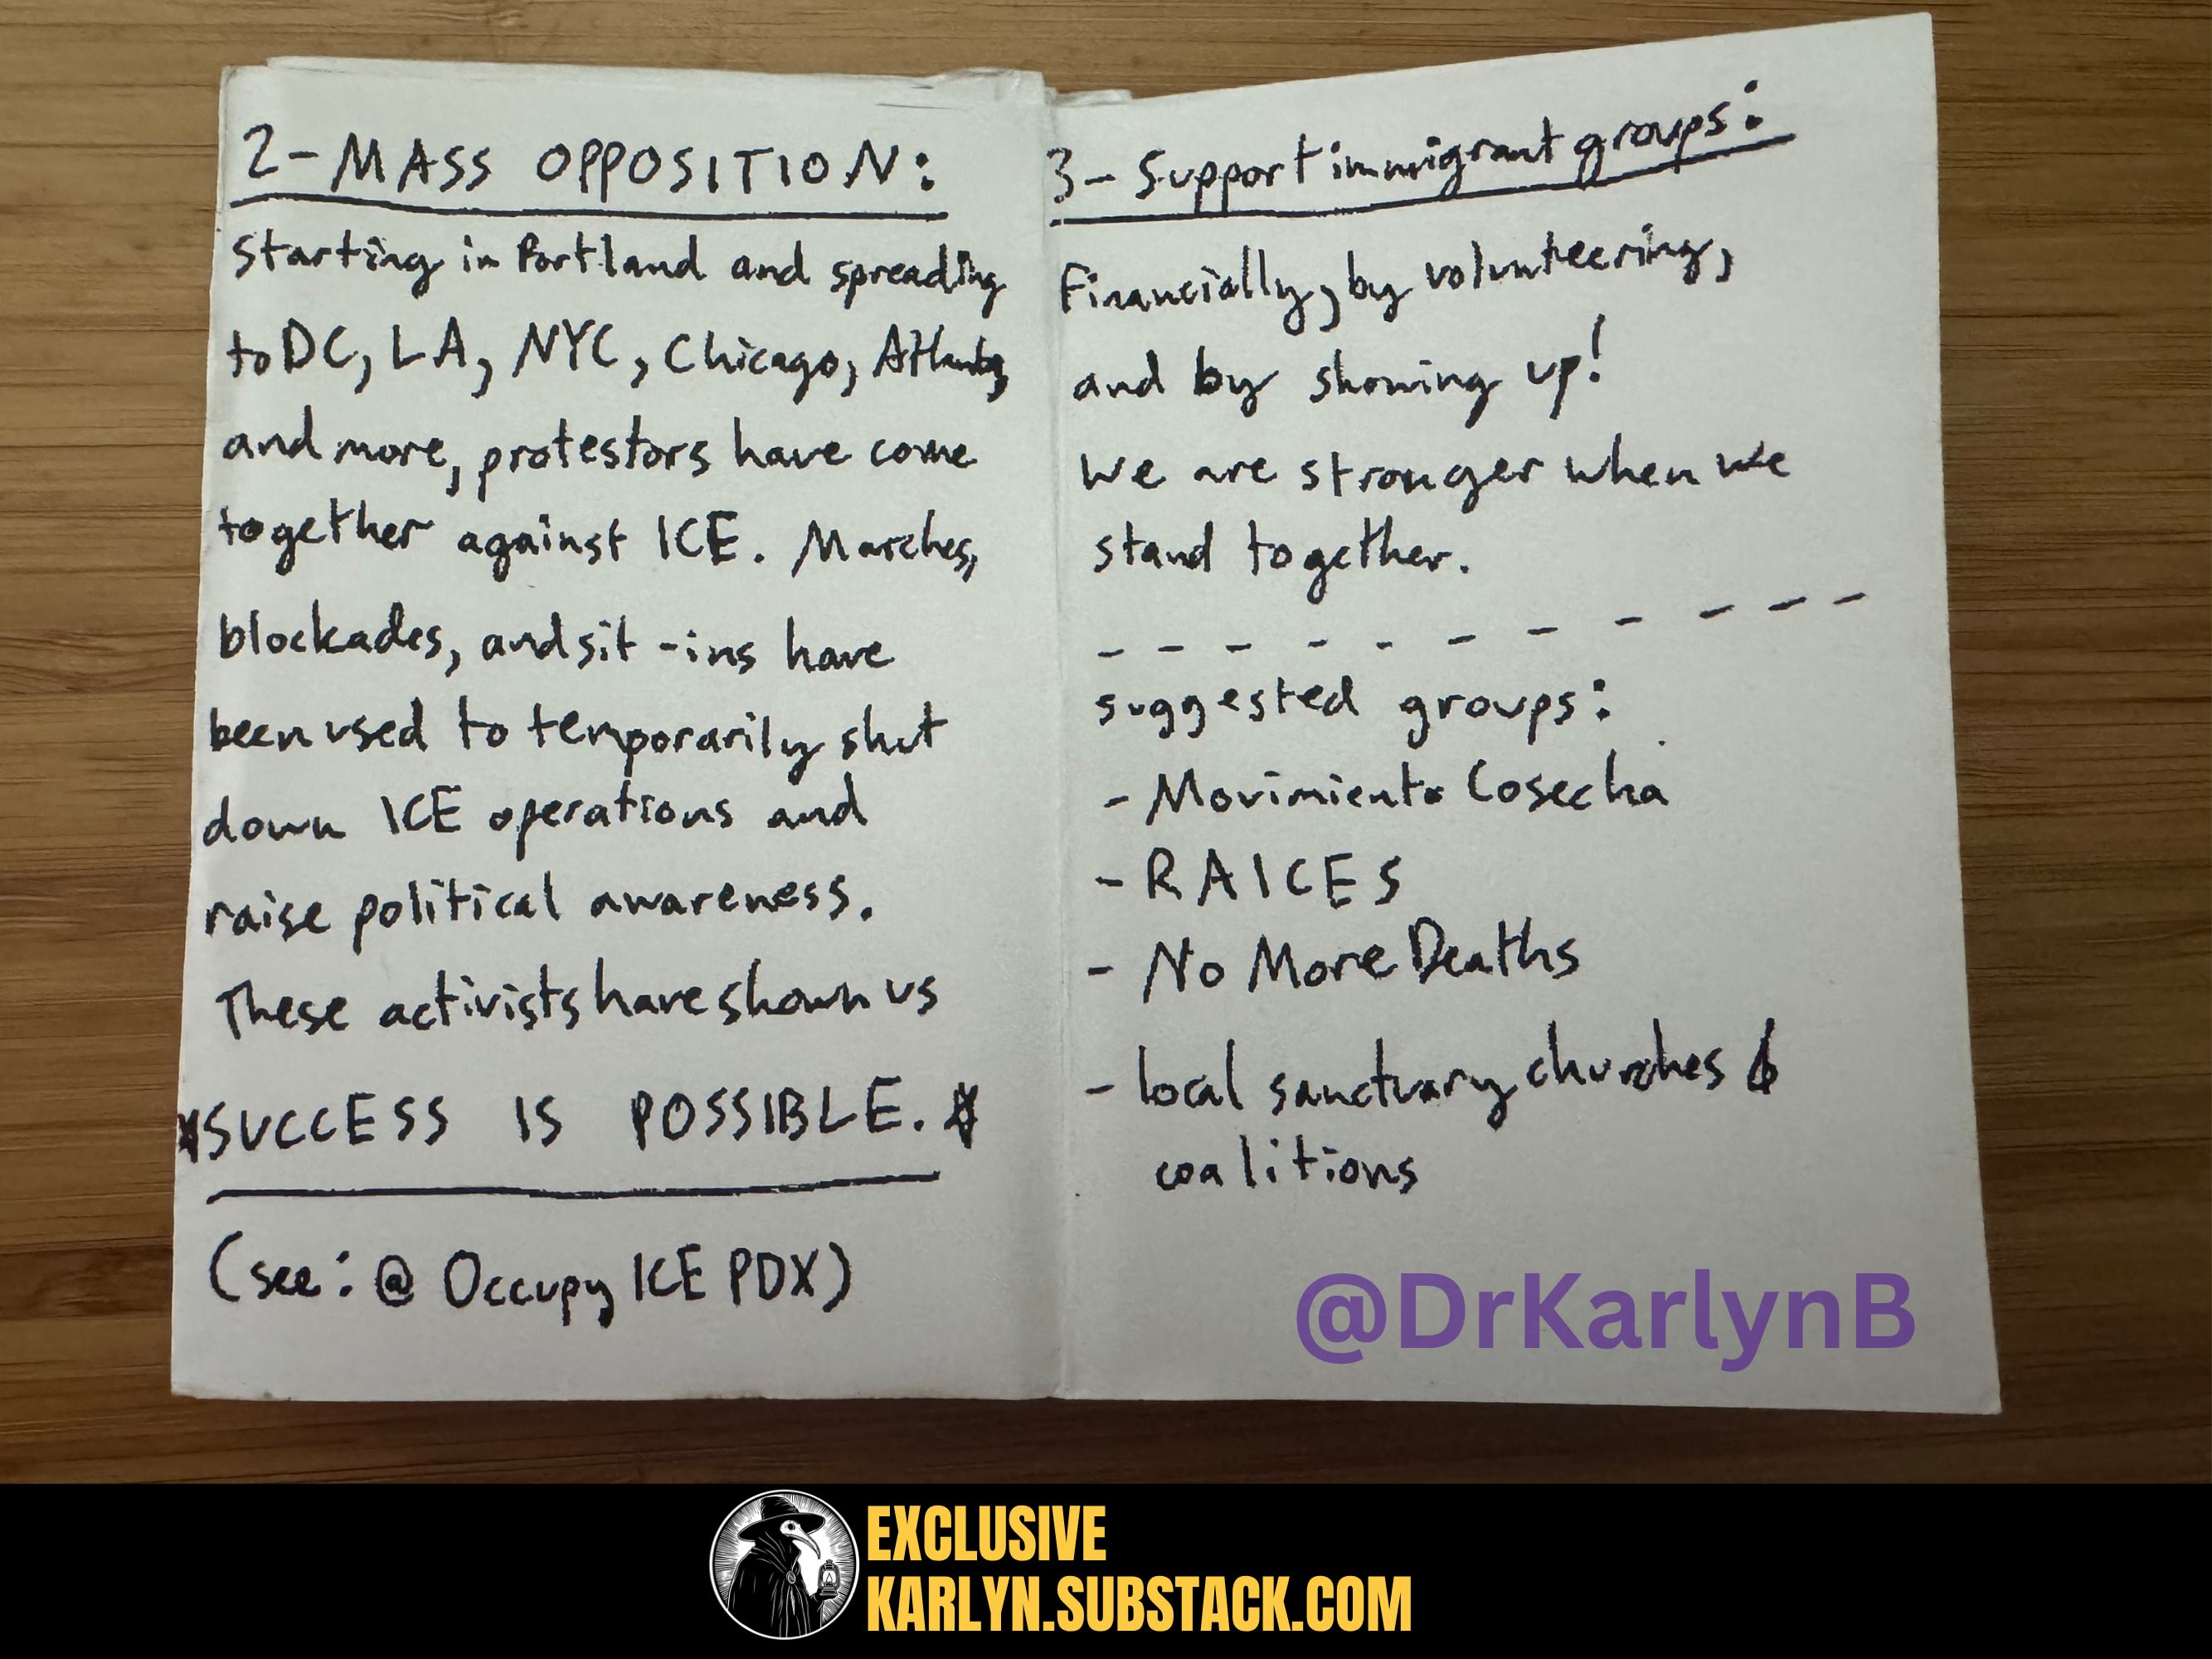 2-MASS OPPOSITION:
Starting in Portland and spreading
to DC, LA, NYC, Chicago, Atlanta,
and more, protestors have come
together against ICE. Marches,
blockades, and sit-ins have
been used to temporarily shut
down ICE operations and
raise political awareness.
These activists have shown us
*SUCCESS IS POSSIBLE.*
(see: @ Occupy ICE PDX)
3- Support immigrant groups:
Financially, by volunteering,
and by showing up!
We are stronger when we
stand together.
suggested groups:
- Movimiento Cosecha
- RAICES
- No More Deaths
- local sanctuary churches &
coalitions
@DrKarlynB
EXCLUSIVE
KARLYN.SUBSTACK.COM